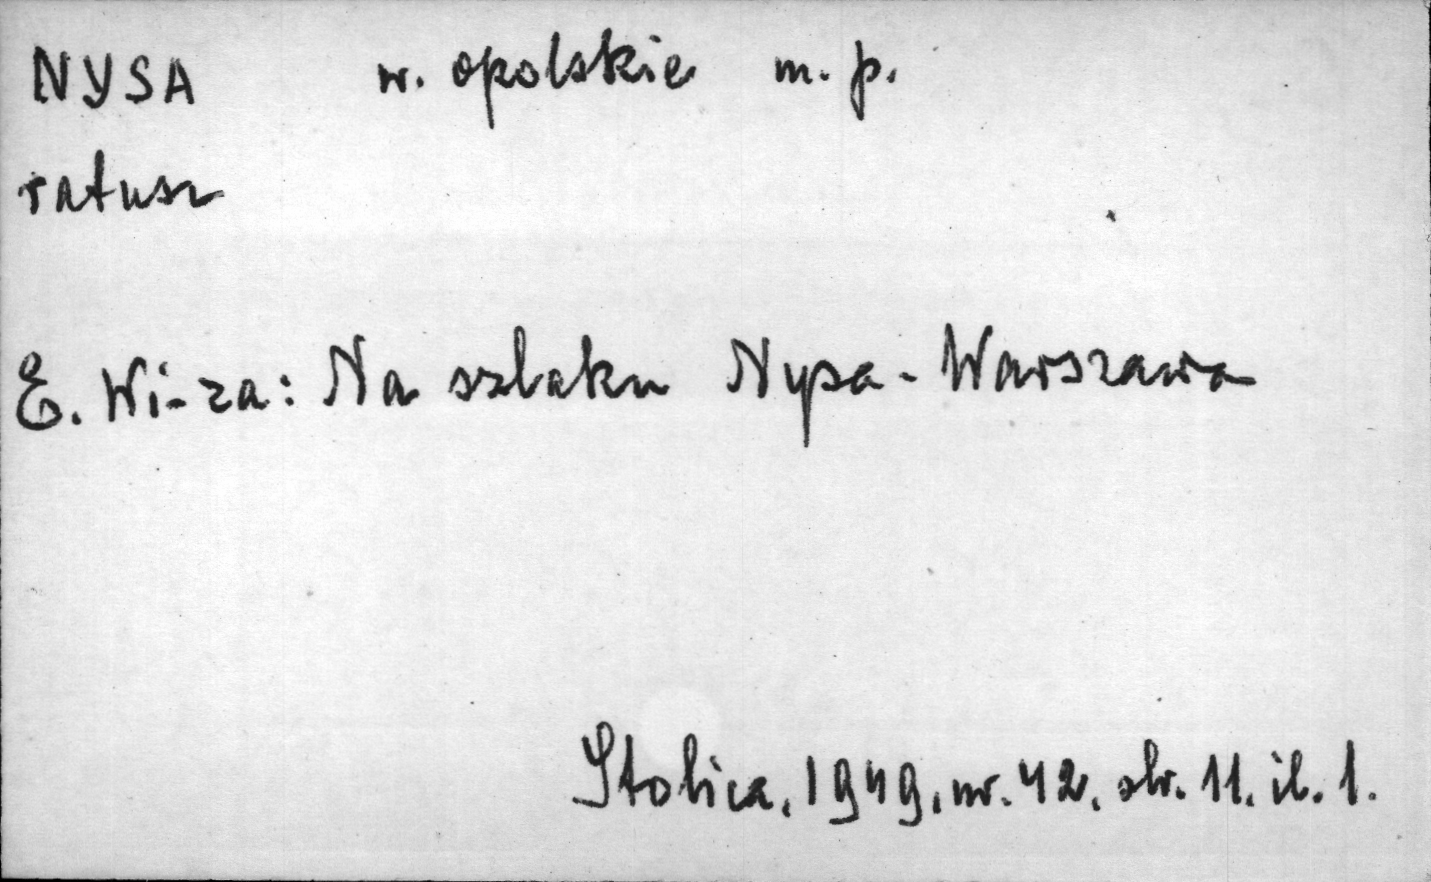 NYSA w. opolskie m. p.
ratusz
E. Wi-za: Na szlaku Nysa - Warszawa
Stolica, 1949, nr. 42, str. 11. il. 1.